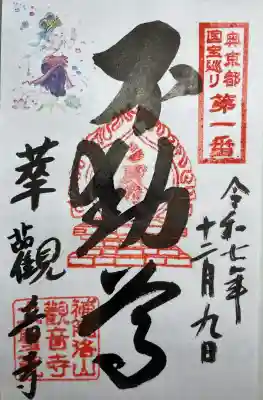 奥京都
国宝巡り 第一番
令和七年
十二月九日
不動尊
華觀音寺
補陀洛山
觀音寺